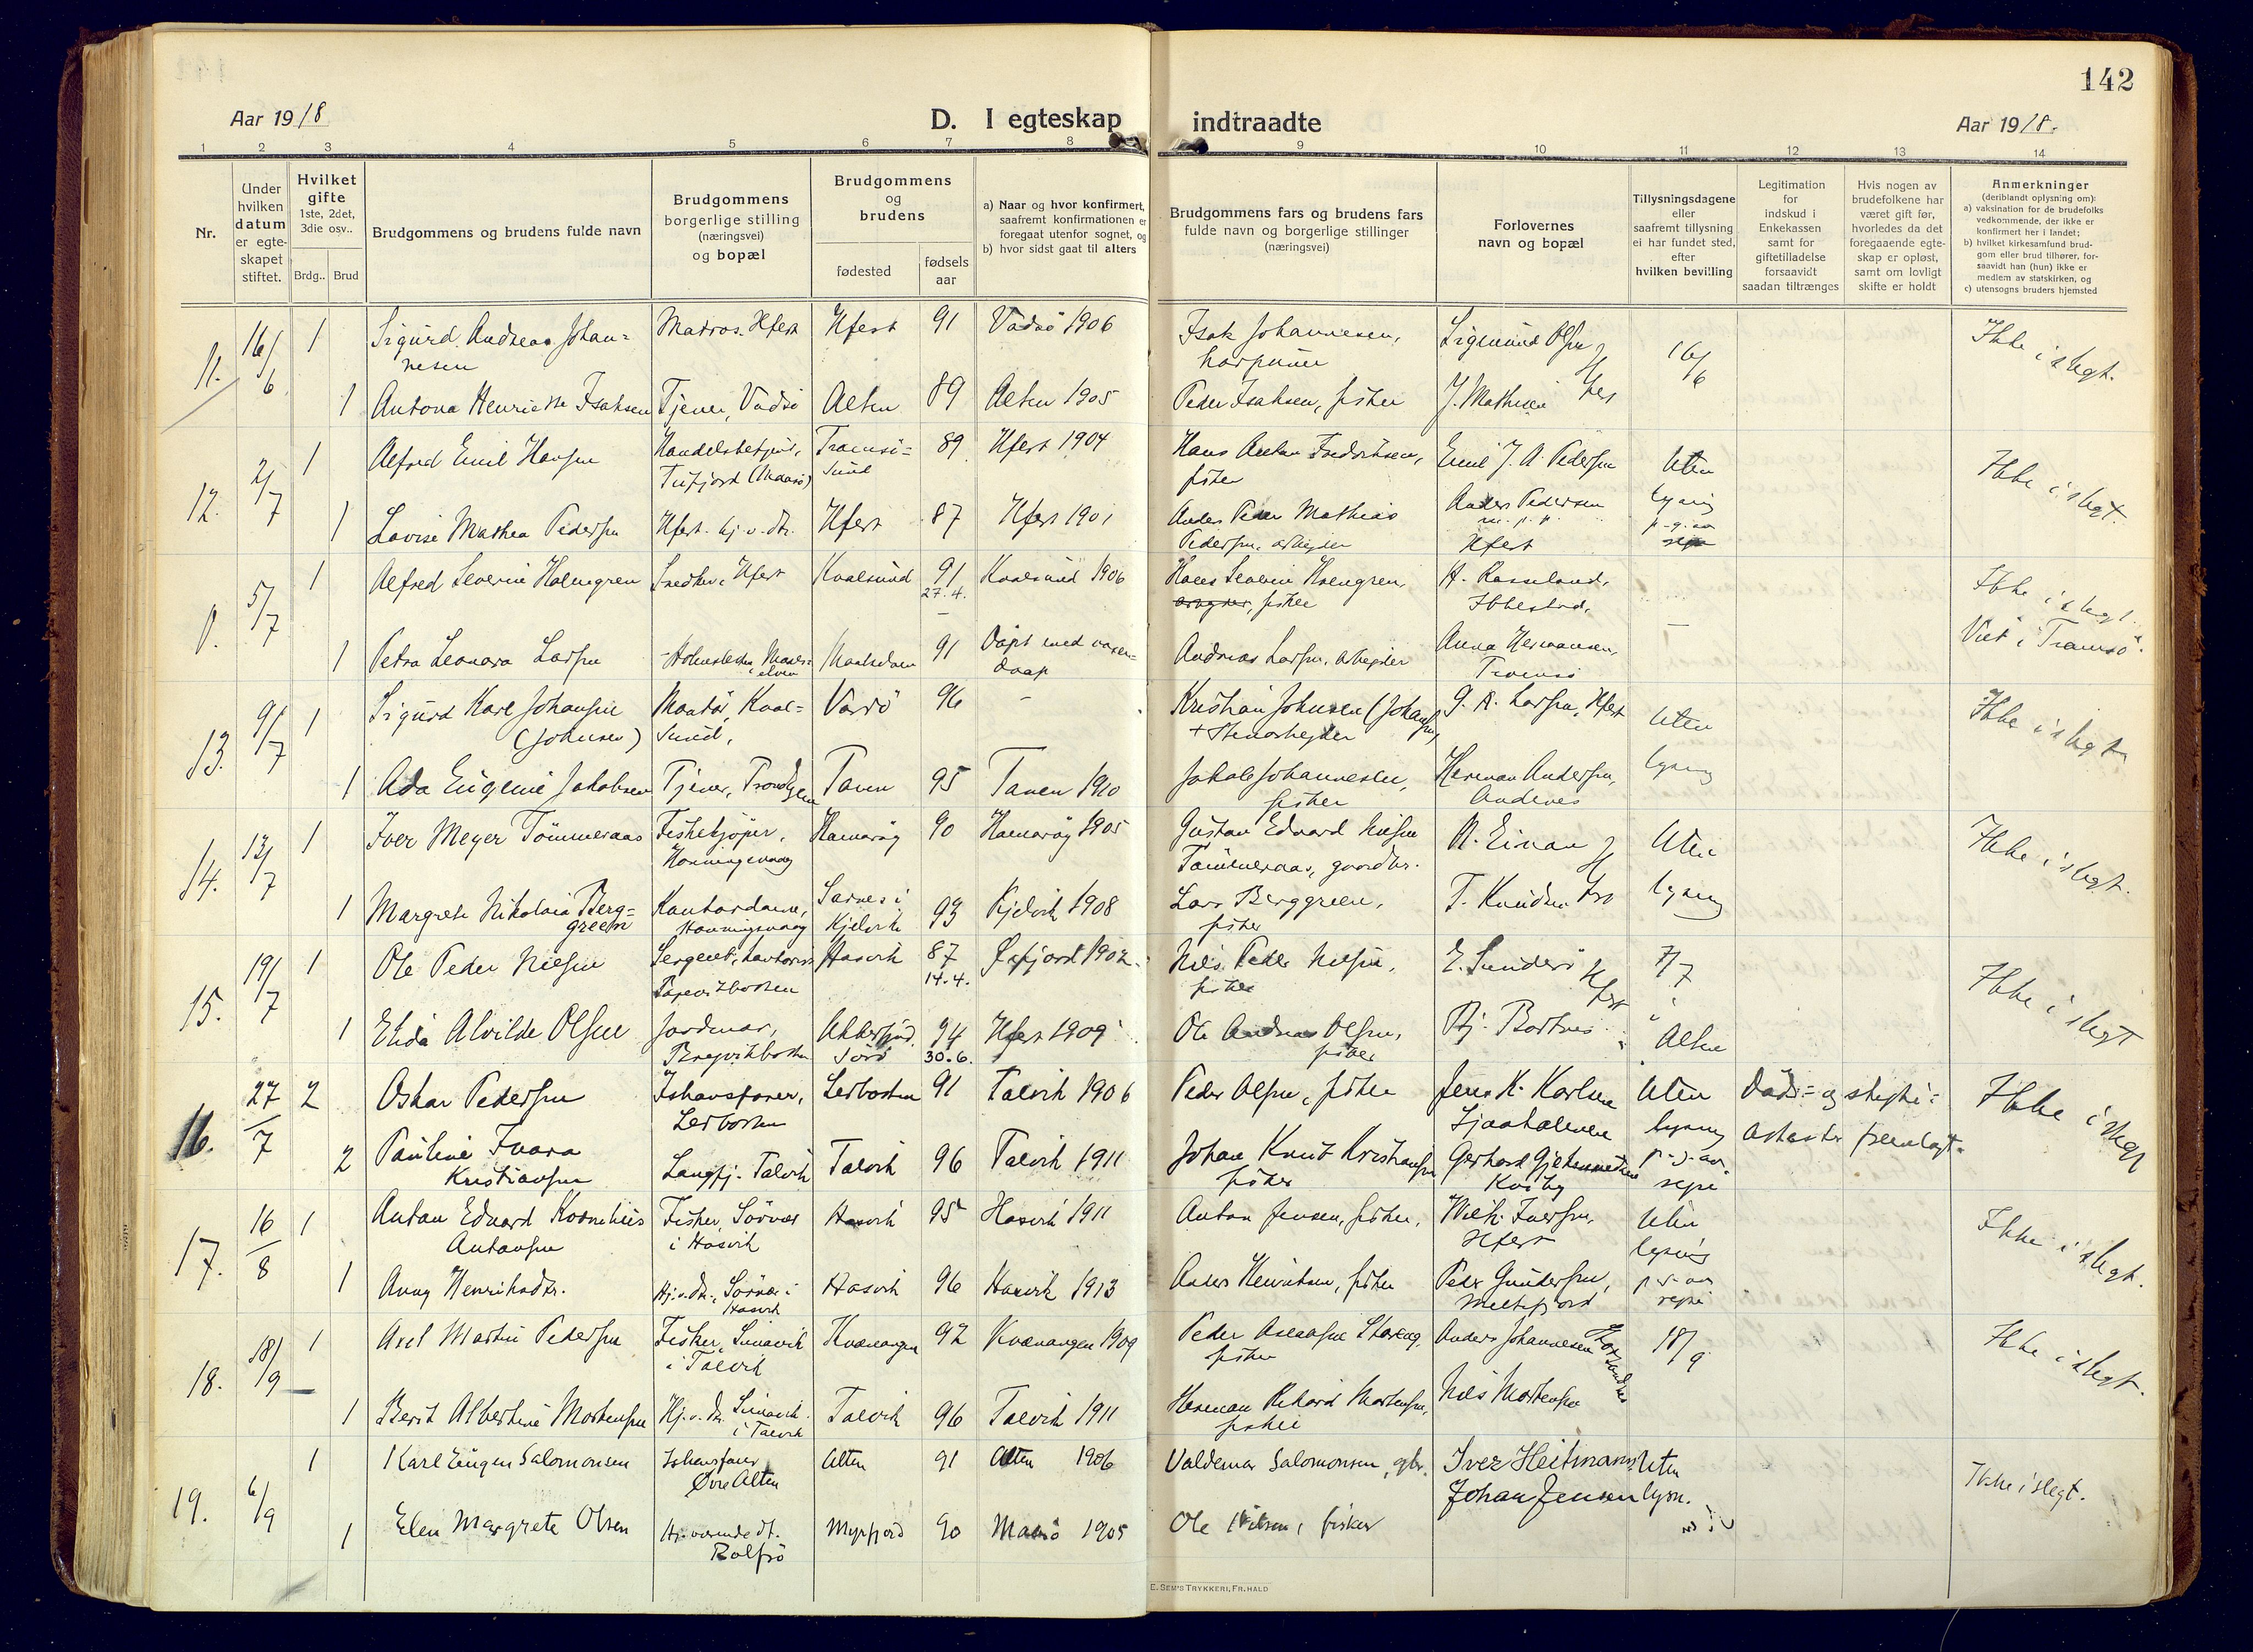 142
Aar 1918
D. I egteskap indtraadte
Aar 1918.
1 2 3 4 5 6 7 8 9 10 11 12 13 14
Nr.
Under hvilken datum er egteskapet stiftet.
Hvilket gifte
1ste, 2det, 3die osv..
Brdg.. Brud
Brudgommens og brudens fulde navn
Brudgommens borgerlige stilling (næringsvei) og bopæl
Brudgommens og brudens
fødested
fødsels aar
a) Naar og hvor konfirmert, saafremt konfirmationen er foregaat utenfor sognet, og
b) hvor sidst gaat til alters
Brudgommens fars og brudens fars fulde navn og borgerlige stillinger (næringsvei)
Forlovernes navn og bopæl
Tillysningsdagene eller saafremt tillysning ei har fundet sted, efter hvilken bevilling
Legitimation for indskud i Enkekassen samt for giftetilladelse forsaavidt saadan tiltrænges
Hvis nogen av brudefolkene har været gift før, hvorledes da det foregaaende egteskap er opløst, samt om lovligt skifte er holdt
Anmerkninger
(deriblandt oplysning om):
a) vaksination for de brudefolks vedkommende, der ikke er konfirmert her i landet;
b) hvilket kirkesamfund brudgom eller brud tilhører, forsaavidt han (hun) ikke er medlem av statskirken, og
c) utensogns bruders hjemsted
11. 16/6 1 Sigurd Andreas Johan=
nesen Matros. Hfest Hfest 91 Vadsö 1906 Isak Johannesen,
harpuner Sigmund Olsen 16/6 Ikke i slegt.
1 Antona Henriette Isaksen Tjener, Vadsö Alten 89 Alten 1905 Peder Isaksen, fisker J. Mathisen
12. 2/7 1 Alfred Emil Hansen Handelsbetjent,
Tufjord (Maasö) Tromsö=
sund 89 Hfest 1904 Hans Anton Fredriksen,
fisker Emil J. A. Pedersen Uten Ikke i slegt.
1 Lovise Mathea Pedersen Hfest. hj. v. dtr. Hfest 87 Hfest 1901 Anders Peder Mathias
Pedersen, arbeider Anders Pedersen
Hfest lysning
5/7 1 Alfred Severin Holmgren Snedker, Hfest Kvalsund 91
27.4. Kvalsund 1906 Hans Severin Holmgren,
fisker Ibbestad. Ikke i slegt.
1 Petra Leonara Larsen 91 Döpt med voxen=
daap Andreas Larsen, arbeider Anna Hermansen,
Tromsö Viet i Tromsö.
13. 9/7 1 Sigurd Karl Johansen
(Johnsen) Kval=
sund, Vardö 96 - Kristian Johnsen (Johansen)
+ Stenarbeider G. A. Larsen, Hfest Uten Ikke i slegt
1 Ada Eugenie Jakobsen Tjener, Tanen 95 Tanen 1910 Jakob Johannesen,
fisker Herman Andersen,
Andenes lysning
14. 13/7 1 Iver Meyer Tömmeraas Fiskekjöper,
Honningsvaag Hamaröy 90 Hamaröy 1905 Gustav Edvard Nilsen
Tömmeraas, gaardbr. Uten Ikke i slegt.
1 Margrete Nikolaia Berg=
green Kontordame,
Honningsvaag Sarnes i
Kjelvik 93 Kjelvik 1908 Lars Berggreen,
fisker T. Knudsen lysning
15. 19/7 1 Ole Peder Nielsen Hasvik 87
14.4. Öxfjord 1902. Nils Peder Nilsen,
fisker 7/7 Ikke i slegt
1 Elida Alvilde Olsen Jordmor, 94
30.6. Hfest 1909 Ole Andreas Olsen,
fisker Alten
16. 27/7 2 Oskar Pedersen Ishavsfarer,
Lerbotten Lerbotten 91 Talvik 1906 Peder Olsen, fisker Jens K. Karlsen Uten Döds= og skifte=
attester fremlagt. Ikke i slegt
2 Pauline Ivara
Kristiansen Langfj. Talvik Talvik 96 Talvik 1911 Johan Knut Kristiansen
fisker Gerhard
Kviby lysning
17. 16/8 1 Anton Edvard Kornelius
Antonsen Fisker, Sörvær
i Hasvik Hasvik 95 Hasvik 1911 Anton Jensen, fisker, Iversen,
Hfest Uten Ikke i slegt.
1 Anny Henriksdtr. Hj. v. dtr., Sörvær i
Hasvik Hasvik 96 Hasvik 1913 Anders Henriksen, fisker Peder Gundersen,
Meltefjord lysning
18. 18/9 1 Axel Martin Pedersen Fisker,
i Talvik Kvænangen 92 Kvænangen 1909 Peder
fisker Anders Johannesen 18/9 Ikke i slegt.
1 Berit Albertine Mortensen Hj. v. dtr.
i Talvik Talvik 96 Talvik 1911 Herman Rikard Mortensen,
fisker Nils Mortensen
19. 6/9 1 Karl Eugen Salomonsen Ishavsfarer
Øvre Alten Alten 91 Alten 1906 Valdemar Salomonsen, gbr. Iver Heitmann Uten Ikke i slegt.
1 Elen Margrete Olsen Hj. værende dt.
Rolfsö Myrfjord 90 Maasö 1905 Ole Nilsen, fisker Johan Jensen lysn.
E. SEM'S TRYKKERI, FR.HALD